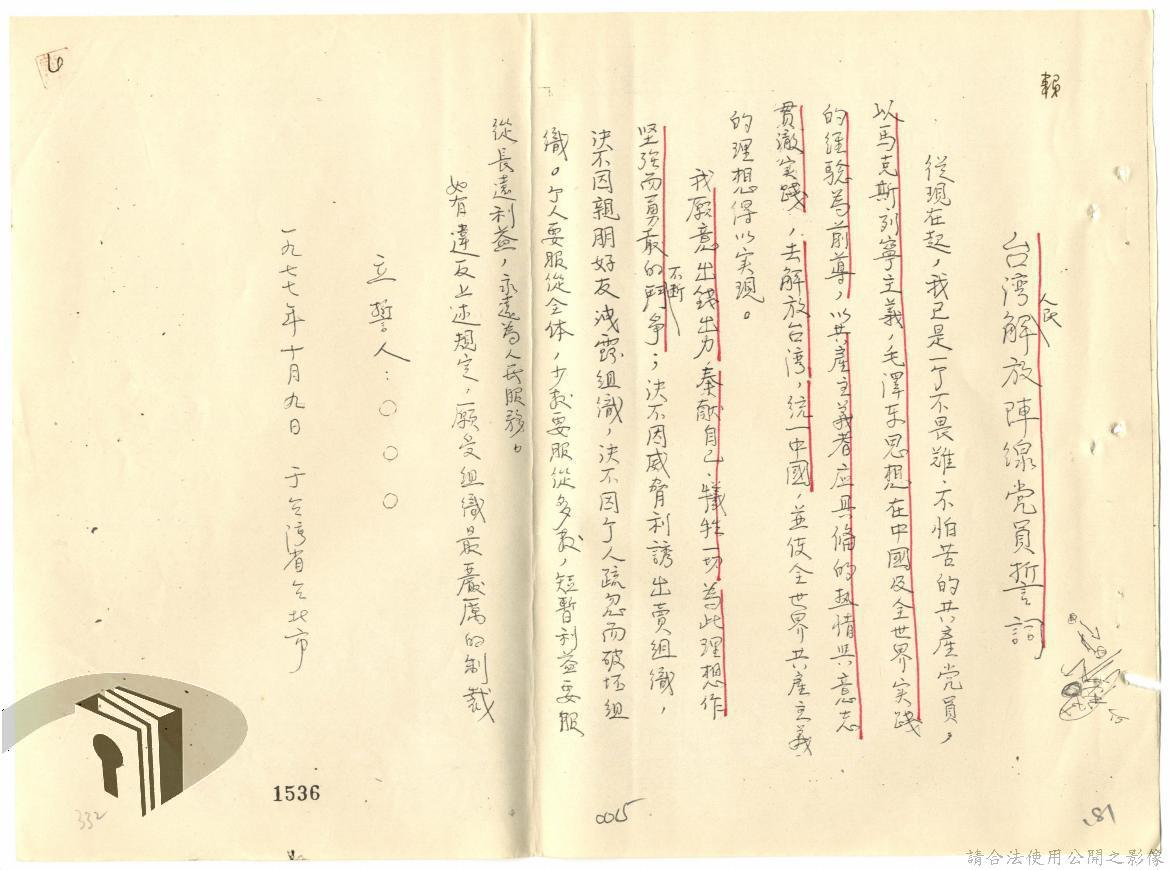 賴
台湾人民解放陣線党員誓詞
從現在起，我已是一个不畏難、不怕苦的共產党員，
以馬克斯列寧主義，毛澤东思想在中國及全世界实踐
的經驗為前導，以共產主義者应具俻的热情與意志
貫澈实踐，去解放台湾，統一中國，並使全世界共產主義
的理想得以实現。
我願意出錢出力，奉献自己、犧牲一切，為此理想作
坚強而勇敢的不断鬥争；決不因威脅利誘出賣組織，
決不因親朋好友洩露組織，決不因个人疏忽而破坯組
織。个人要服從全体，少数要服從多数，短暫利益要服
從長遠利益，永遠為人民服務。
如有違反上述規定，願受組織最嚴厲的制裁
立誓人：○○○
一九七七年十月九日 于台湾省台北市
6
181
0015
1536
332
請合法使用公開之影像